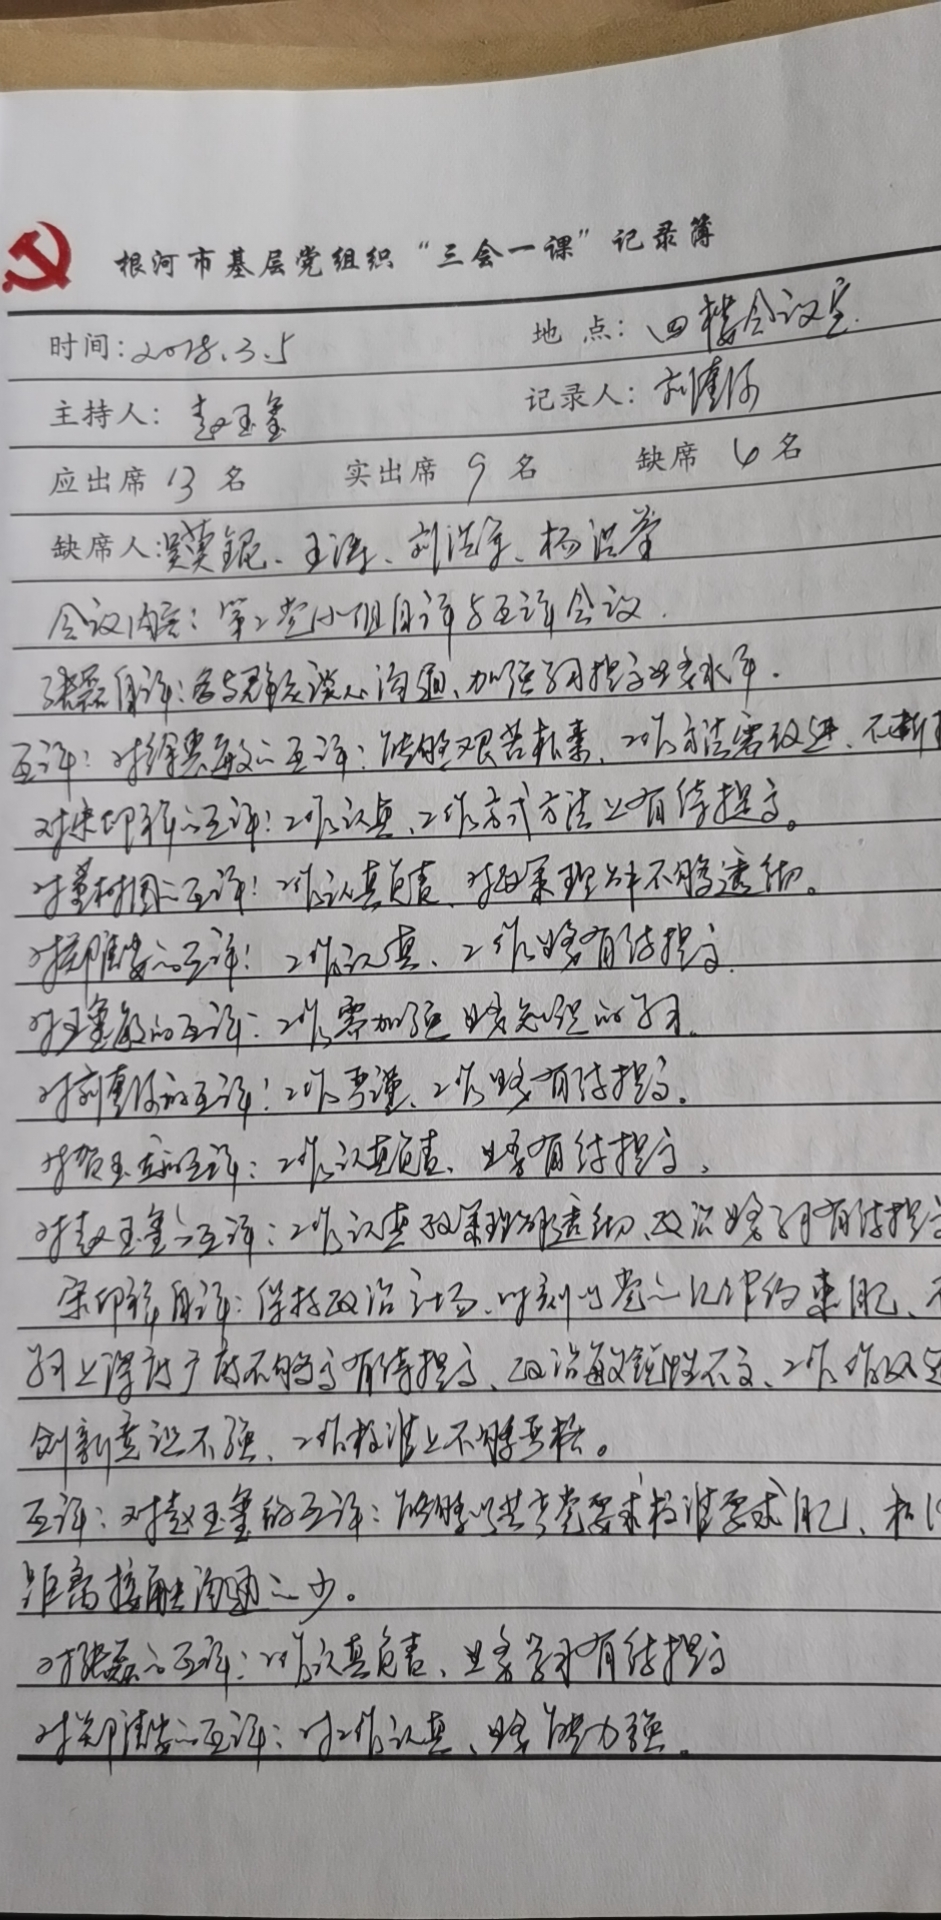 根河市基层党组织“三会一课”记录簿
时间:2018.3.5 地点:四楼会议室.
主持人: 赵玉鑫 记录人:
应出席 13 名 实出席 9 名 缺席 4 名
缺席人: 、王涛、刘洪军、杨洪
会议内容:第2党小组自评与互评会议.
张磊自评:多与群众谈心沟通、加强学习提高业务水平.
互评:对徐惠敏的互评:能够艰苦朴素、工作方法需改进、不断
对宋印祥的互评:工作认真、工作方式方法上有待提高。
对董树国的互评:工作认真负责、对政策理解不够透彻。
对郑佳的互评:工作认真、工作业务有待提高.
对王金敏的互评:工作需加强业务知识的学习.
对刘的互评:工作严谨、工作业务有待提高.
对贺玉的互评:工作认真负责、业务有待提高.
对赵玉鑫的互评:工作认真政策理解透彻、政治业务学习有待提高
宋印祥自评:保持政治立场、时刻以党的纪律约束自己、
学习上深度广度不够高有待提高、政治敏锐性不高、工作
创新意识不强、工作标准上不够严格。
互评:对赵玉鑫的互评:能够以共产党要求标准要求自己、
距离接触沟通的少。
对张磊的互评:工作认真负责、业务学习有待提高
对郑佳的互评:对工作认真、业务能力强.